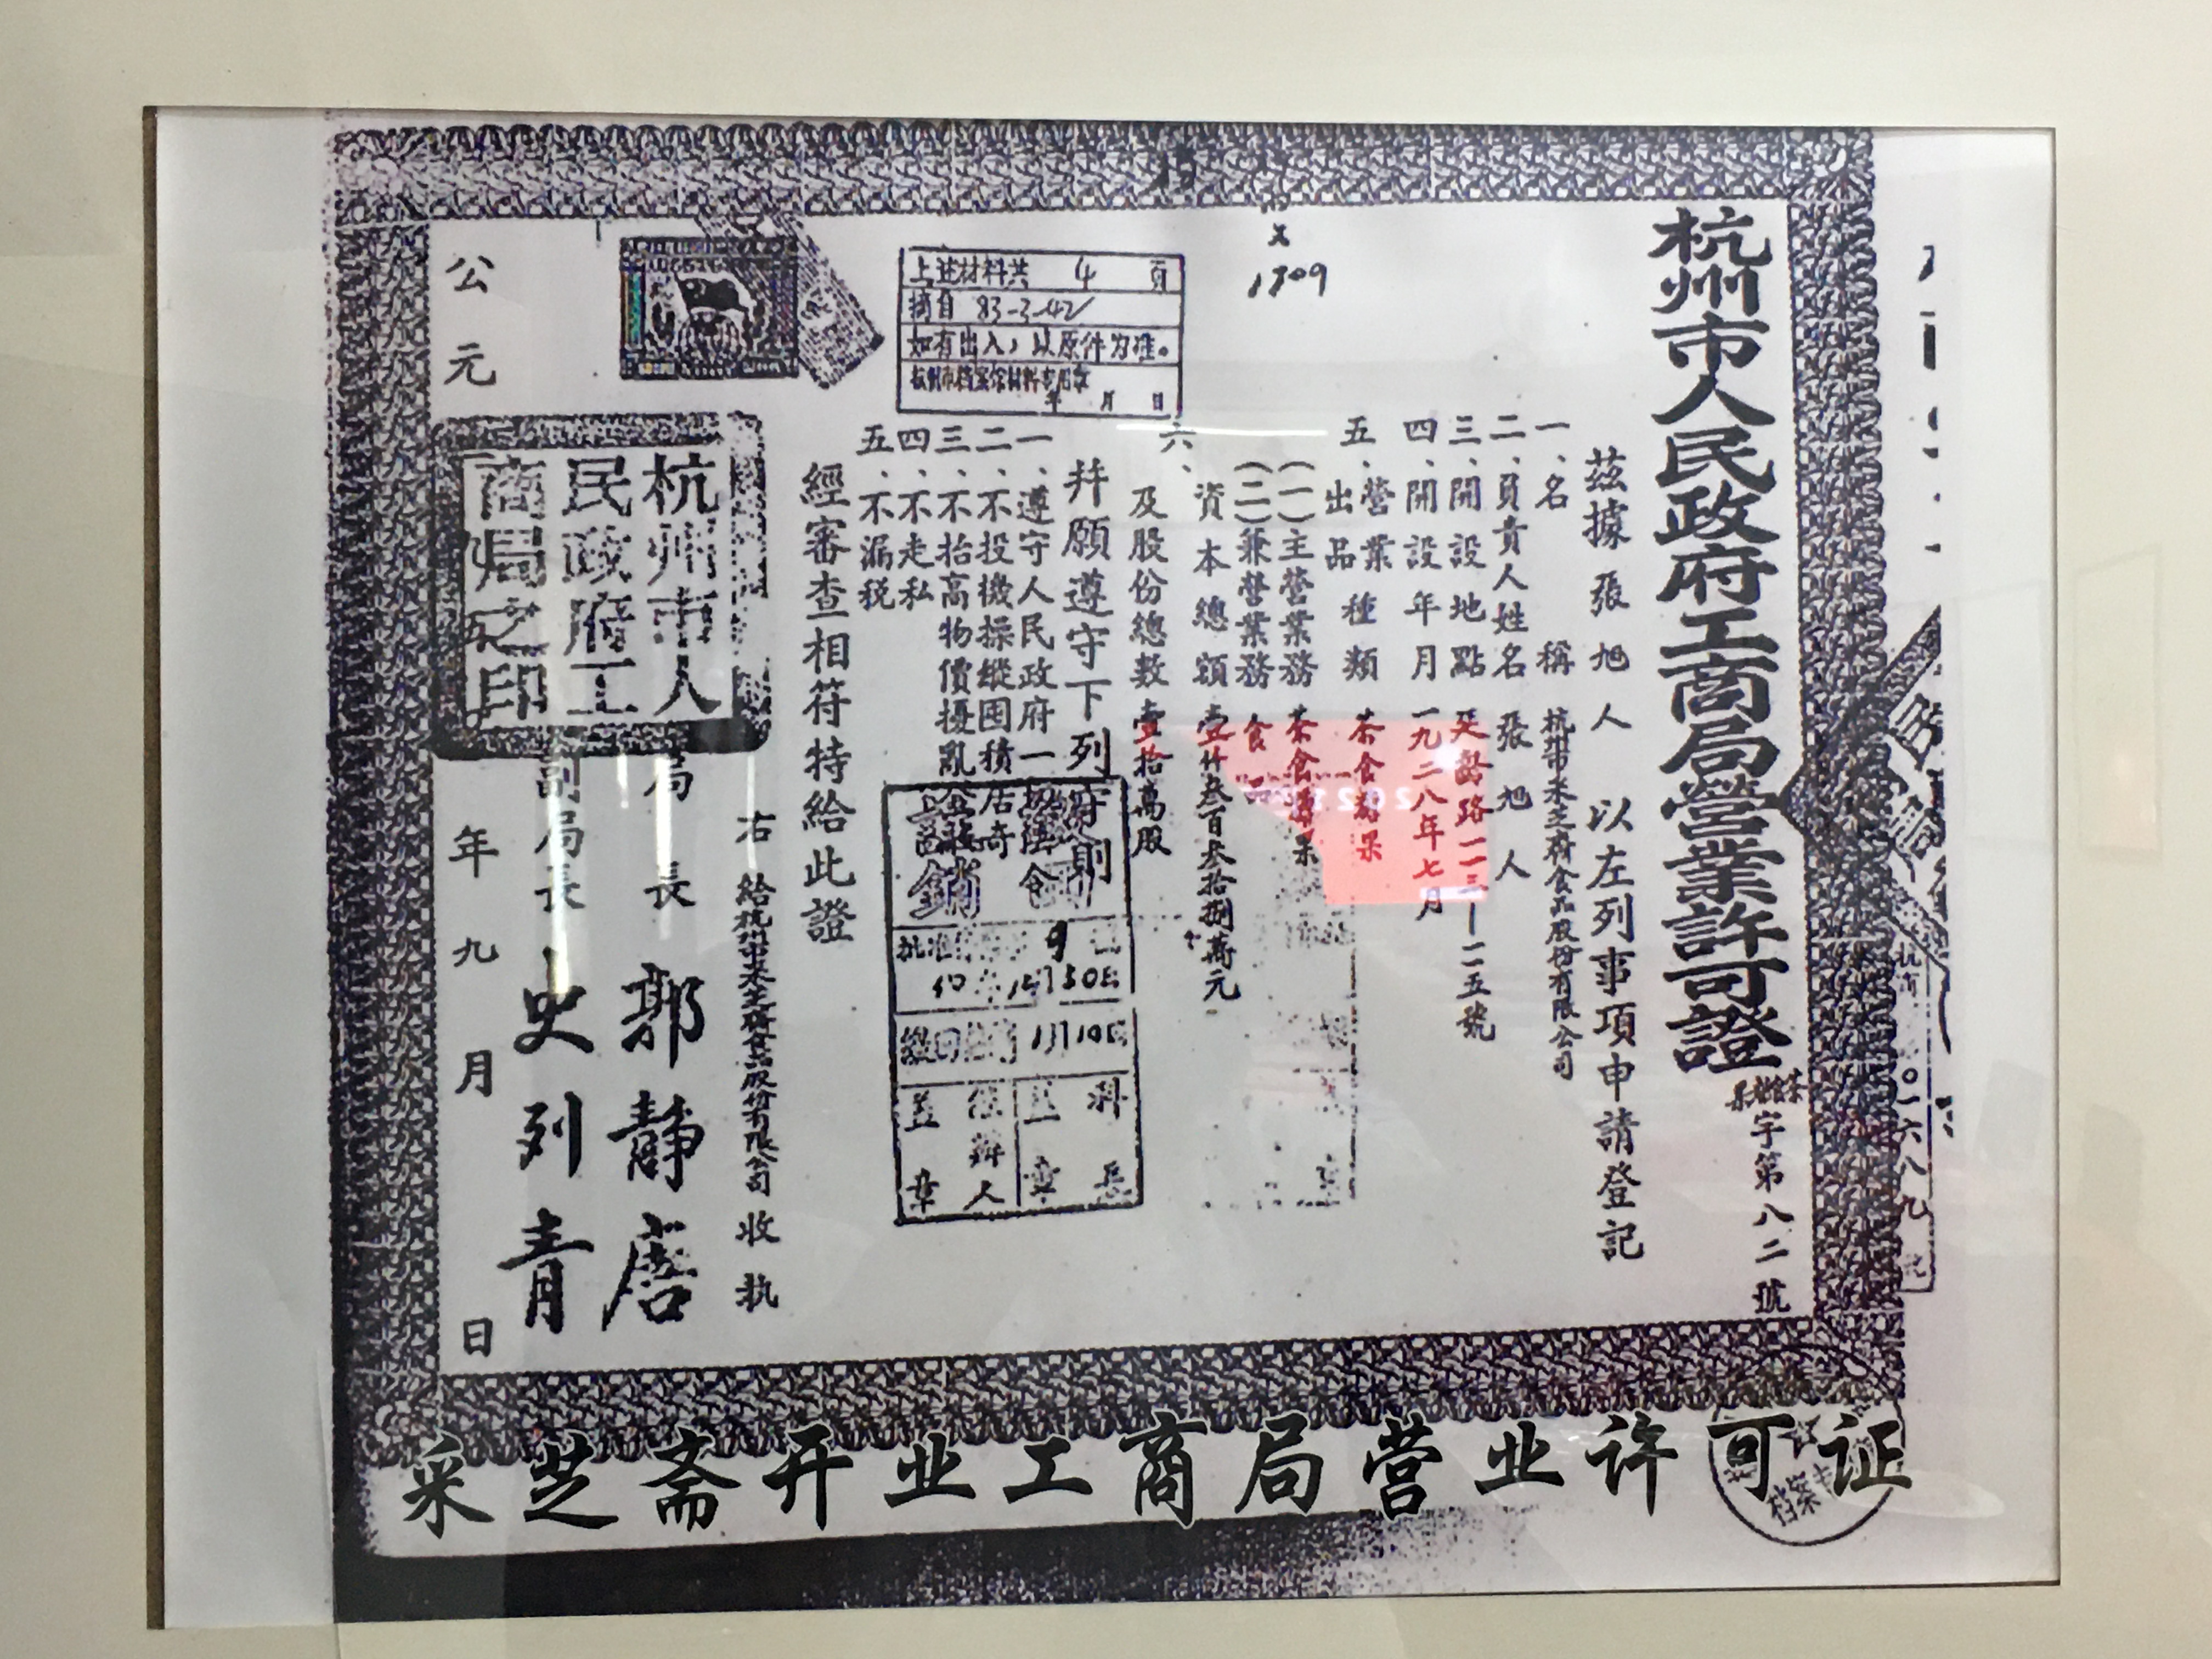 杭州市人民政府工商局營業許可證
茶食糖果字第八二號
茲據張旭人以左列事項申請登記
一、名稱 杭州市采芝齋食品股份有限公司
二、負責人姓名 張旭人
三、開設地點 延齡路一一三—一一五號
四、開設年月 一九二八年七月
五、營業種類 茶食糖果
出品
(一)主營業務 茶食糖果
(二)兼營業務 食品
六、資本總額 壹仟叁百叁拾捌萬元
及股份總數 壹拾萬股
幷願遵守下列
一、遵守人民政府一
二、不投機操縱囤積居奇
三、不抬高物價擾亂金融
四、不走私
五、不漏税
經審查相符特給此證
右給杭州市采芝齋食品股份有限公司收执
局長 郭靜唐
副局長 史列青
公元 年九月 日
杭州市人
民政府工
商局之印
上述材料共 4 頁
摘自 83-3-42
如有出入,以原件为准。
杭州市档案馆材料专用章
年 月 日
1309
銷
批准
繳回
1月10日
科長
蓋章
經辦人
蓋章
档案
采芝斋开业工商局营业许可证